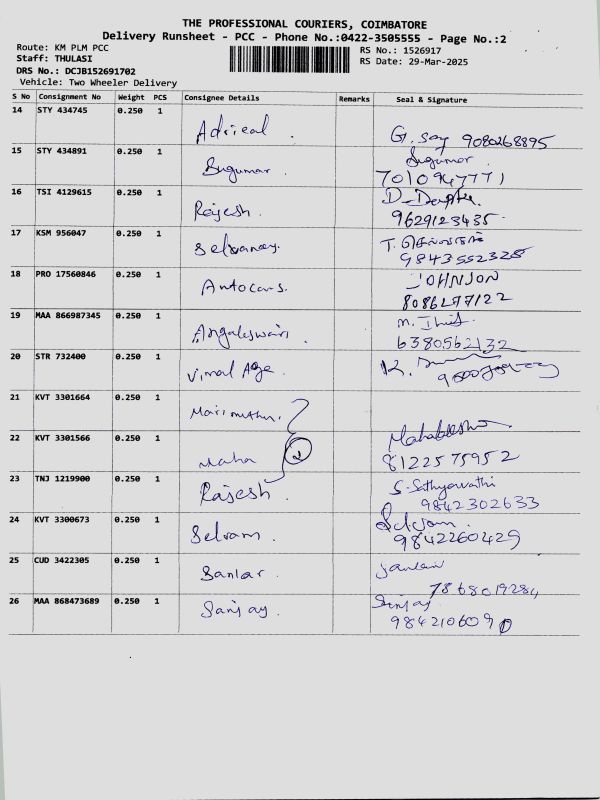 THE PROFESSIONAL COURIERS, COIMBATORE
Delivery Runsheet - PCC - Phone No.:0422-3505555 - Page No.:2
Route: KM PLM PCC
RS No.: 1526917
Staff: THULASI
RS Date: 29-Mar-2025
DRS No.: DCJB152691702
Vehicle: Two Wheeler Delivery
S No Consignment No Weight PCS Consignee Details Remarks Seal & Signature
14 STY 434745 0.250 1
Adrieal. G. Say 9080268895
15 STY 434891 0.250 1 Sugumar
Sugumar. 7010947771
16 TSI 4129615 0.250 1
Rajesh. 9629123435
17 KSM 956047 0.250 1 T.
Selvanay. 9843552325
18 PRO 17560846 0.250 1 JOHNSON
Autocars. 8086277122
19 MAA 866987345 0.250 1 M.
Angaleswari. 6380562132
20 STR 732400 0.250 1 K.
Vimal Age.
21 KVT 3301664 0.250 1
Marimuthu.
22 KVT 3301566 0.250 1
Maha 2 8122575952
23 TNJ 1219900 0.250 1 S. Sathyavathi
Rajesh. 9842302633
24 KVT 3300673 0.250 1 Selvam.
Selvam. 9842260429
25 CUD 3422305 0.250 1
Sanlar.
26 MAA 868473689 0.250 1 Sanjay.
Sanjay. 9842106090